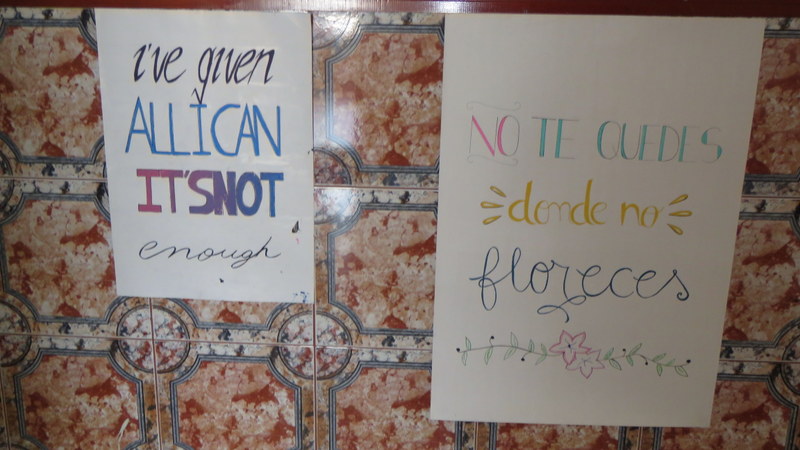 i've given
ALL I CAN
IT'S NOT
enough
NO TE QUEDES
donde no
floreces